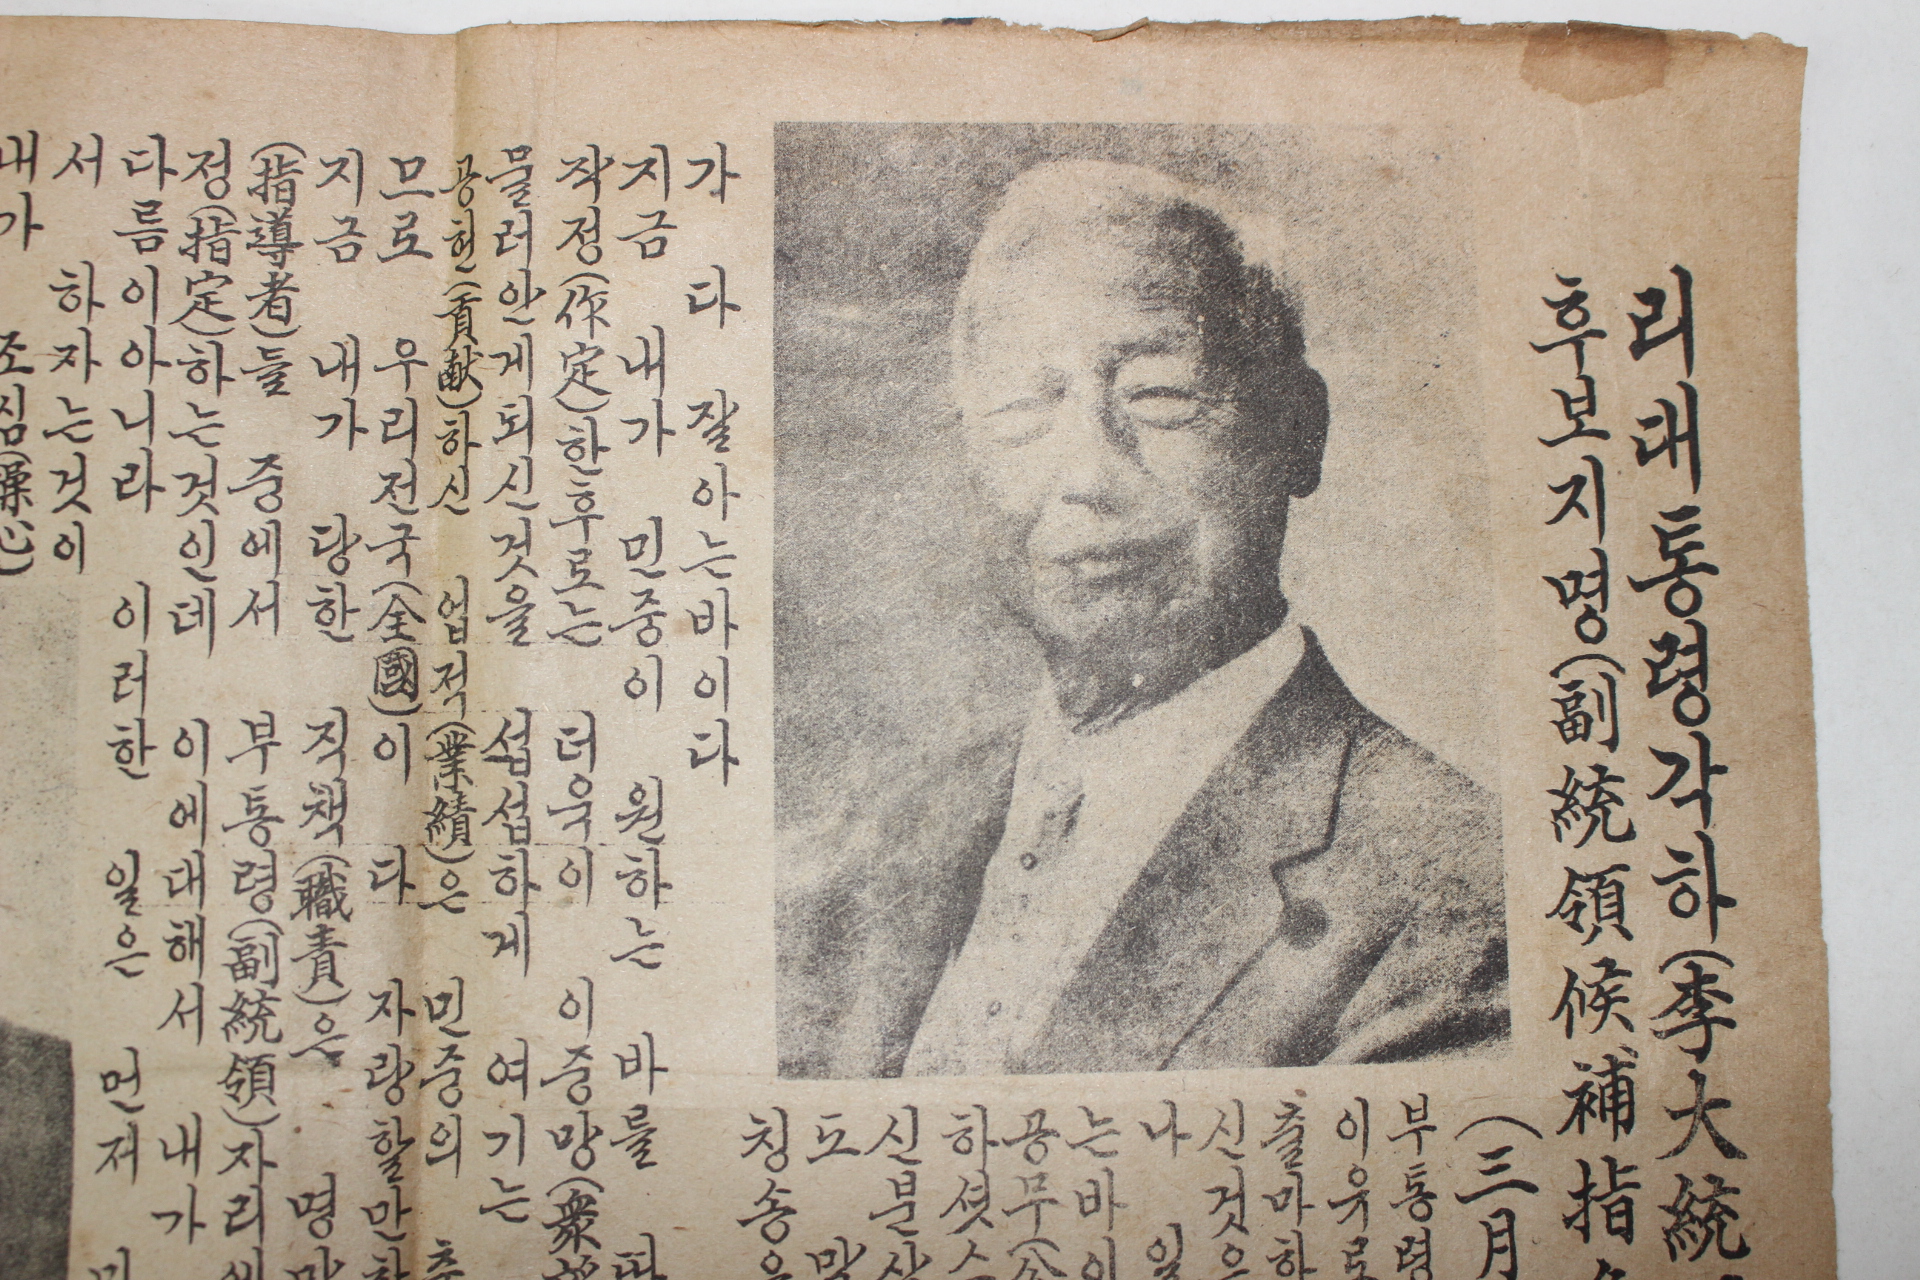 리대통령각하(李大統
후보지명(副統領候補指
(三月
부통령
이유로
출마하
신것은
나 일
는바이
공무(公
하셧스
신분상
도 말
칭송을
가 다 잘아는바이다
지금 내가 민중이 원하는 바를
작정(作定)한후로는 더욱이 이중망(衆
물러안게되신것을 섭섭하게 여기는
공헌(貢献)하신 업적(業績)은 민중의
므로 우리전국(全國)이 다 자랑할만한
지금 내가 당한 직책(職責)은 명망
(指導者)들 중에서 부통령(副統領)자리에
정(指定)하는것인데 이에대해서 내가
다름이아니라 이러한 일은 먼저
서 하자는것이
내가 조심(操心)